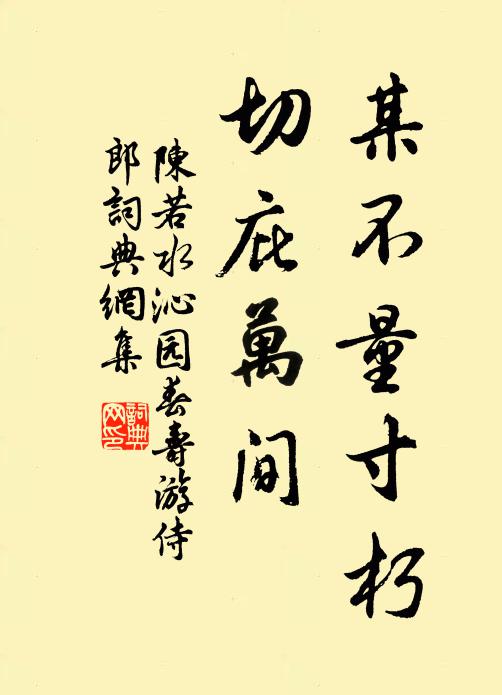 某不量寸朽
切庇萬间
陳若水沁园春壽游侍
郎詞典網集
詞典网印